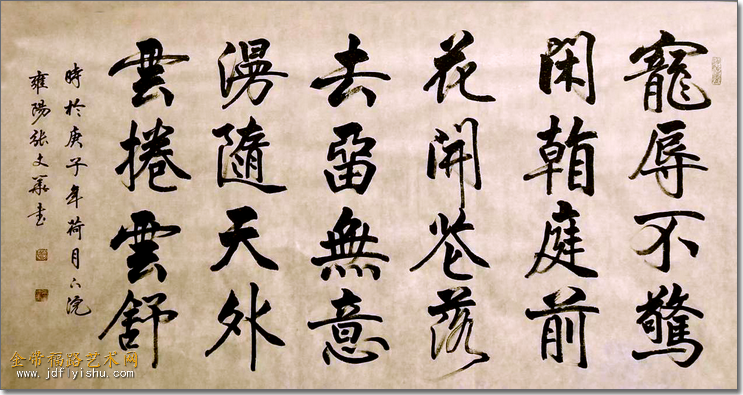 寵辱不驚
閑看庭前
花開花落
去留無意
漫隨天外
雲捲雲舒
時於庚子年荷月下浣
雍陽張文華書
金帝福路艺术网
www.jdflyishu.com